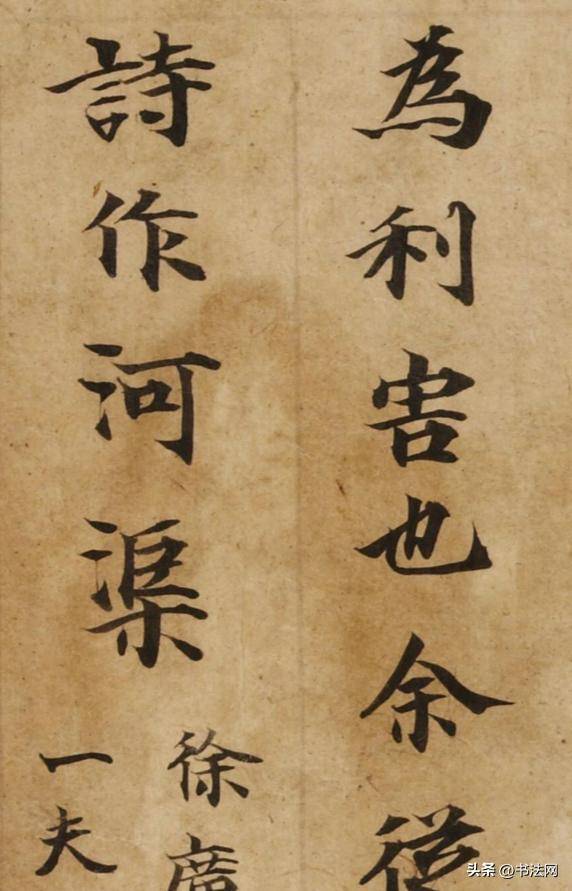 為利害也余從
詩作河渠
徐廣
一夫
头条 @书法网